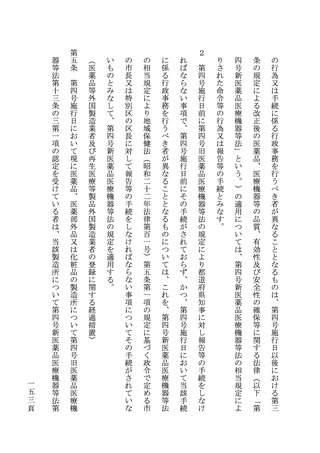 の行為又は手続に係る行政事務を行うべき者が異なることとなるものは、第四号施行日以後における第三
条の規定による改正後の医薬品、医療機器等の品質、有効性及び安全性の確保等に関する法律（以下「第
四号新医薬品医療機器等法」という。）の適用については、第四号新医薬品医療機器等法の相当規定によ
りされた命令等の行為又は報告等の手続とみなす。
２　第四号施行日前に第四号旧医薬品医療機器等法の規定により都道府県知事に対し報告等の手続をしなけ
ればならない事項で、第四号施行日前にその手続がされておらず、かつ、第四号施行日において当該手続
に係る行政事務を行うべき者が異なることとなるものについては、これを、第四号新医薬品医療機器等法
の相当規定により地域保健法（昭和二十二年法律第百一号）第五条第一項の規定に基づく政令で定める市
の市長又は特別区の区長に対して報告等の手続をしなければならない事項についてその手続がされていな
いものとみなして、第四号新医薬品医療機器等法の規定を適用する。
（医薬品等外国製造業者及び再生医療等製品外国製造業者の登録に関する経過措置）
第五条　第四号施行日において現に医薬品、医薬部外品又は化粧品の製造所について第四号旧医薬品医療機
器等法第十三条の三第一項の認定を受けている者は、当該製造所について第四号新医薬品医療機器等法第
一五三頁